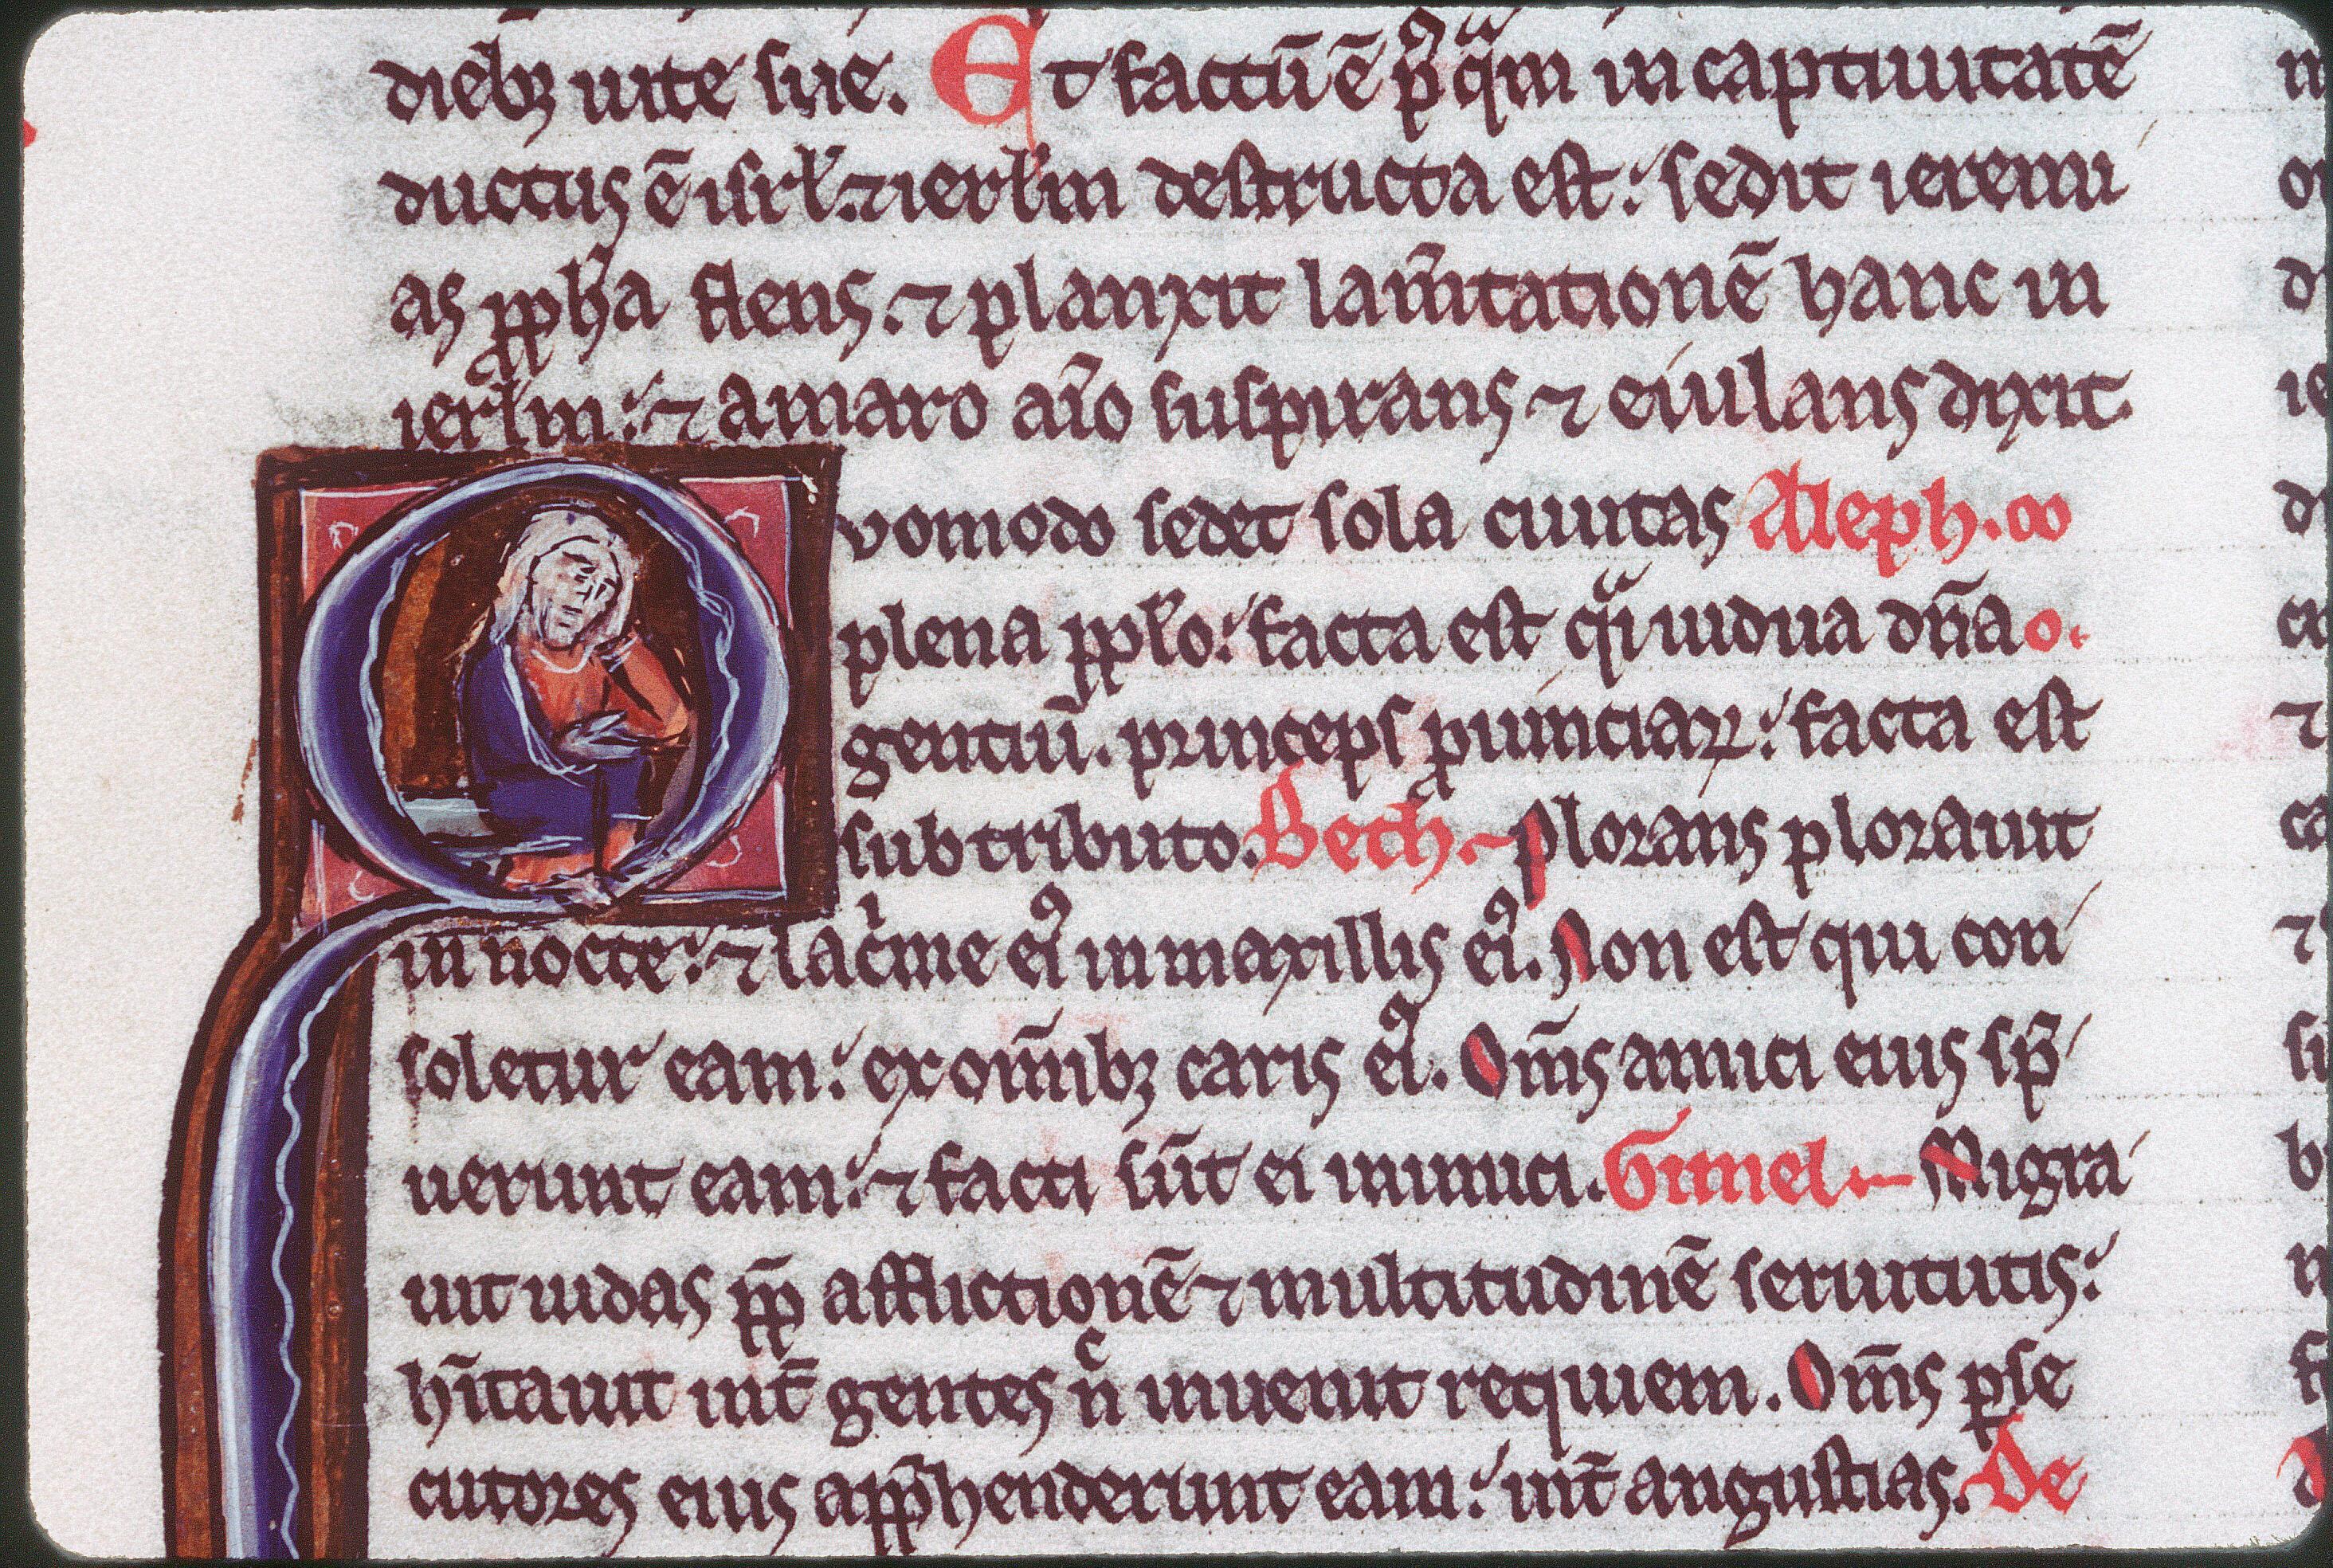 dieb; uite sue. Et factū ē p᷒ qͣm in captiuitatē
ductus ē isrl̄. ⁊ ierl̄m destructa est: sedit ieremi
as ꝓph̄a flens. ⁊ planxit lam̄tationē hanc in
ierl̄m: ⁊ amaro aīo suspirans ⁊ eiulans dixit.
Qvomodo sedet sola ciuitas Aleph.
plena ppl̄o: facta est qͣi uidua dn̄a
gentiū. princeps ꝓuinciaꝝ: facta est
sub tributo. Beth. Plorans plorauit
in nocte: ⁊ lac͛me ei᷒ in maxillis ei᷒. Non est qui con
soletur eam: ex om̄ib; caris ei᷒. Om̄s amici eius sp̄
uerunt eam: ⁊ facti sūt ei inimici. Gimel Migra
uit iudas ꝓp̄ afflictionē ⁊ multitudinē seruitutis:
hītauit int̄ gentes nͨ inuenit requiem. Om̄s ꝑse
cutores eius app̄henderunt eam: int̄ angustias. De